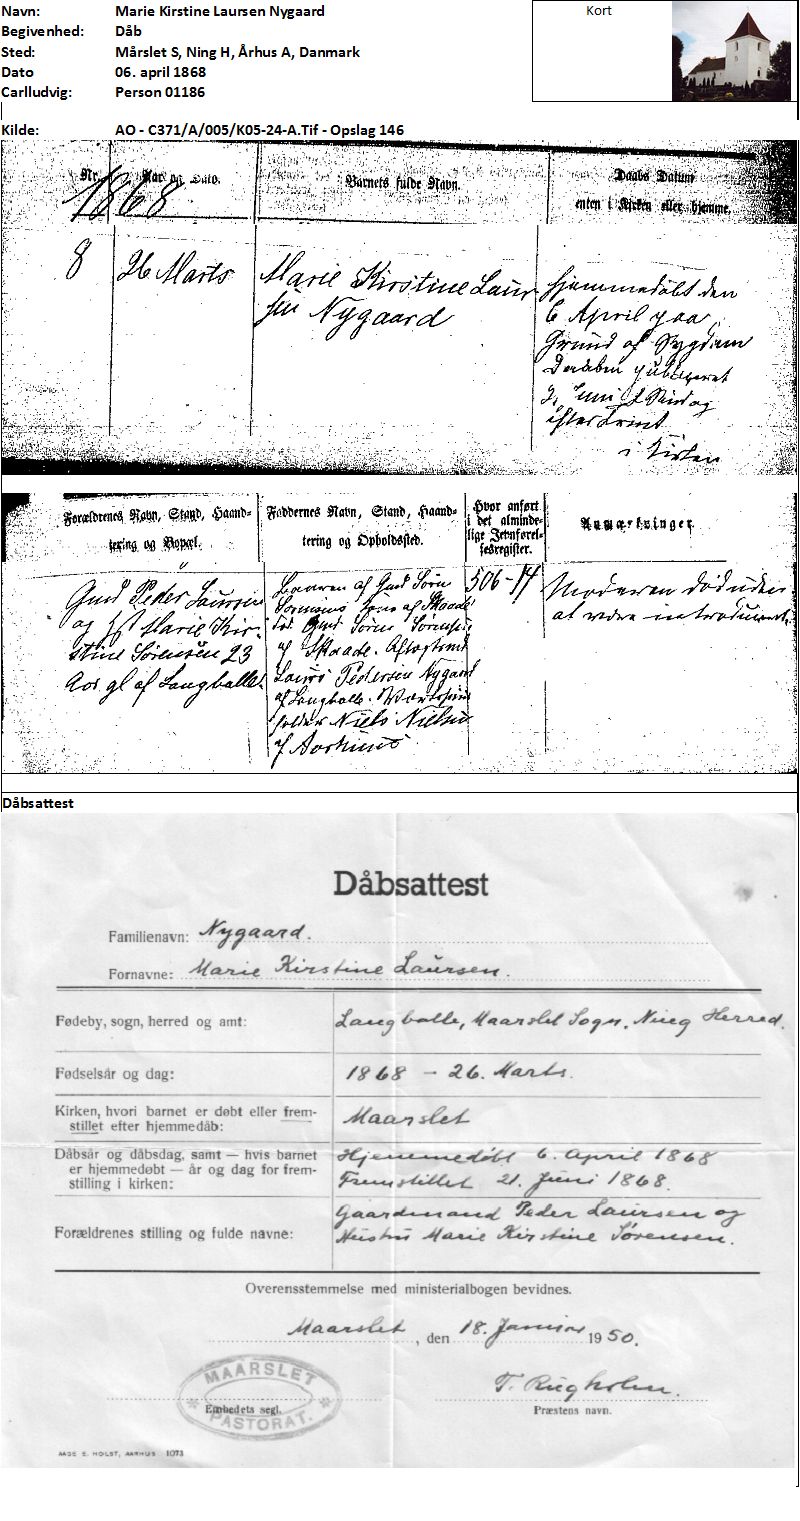 Navn: Marie Kirstine Laursen Nygaard
Begivenhed: Dåb
Sted: Mårslet S, Ning H, Århus A, Danmark
Dato 06. april 1868
Carlludvig: Person 01186
Kort
Kilde: AO - C371/A/005/K05-24-A.Tif - Opslag 146
Nr. Aar og Dato. Barnets fulde Navn. Daabs Datum
1868 enten i Kirken eller hjemme.
8 26 Marts Marie Kirstine Laur- hjemmedøbt den
sen Nygaard 6 April paa
Grund af Sygdom
Daaben
Juni
efter Trinit
i Kirken
Forældrenes Navn, Stand, Haand-
tering og Bopæl.
Faddernes Navn, Stand, Haand-
tering og Opholdssted.
Hvor anført
i det alminde-
lige Jevnførel-
sesregister.
Anmærkninger.
Gmd Peder Laursen
og Hst Marie Kir-
stine Sørensen 23
Aar gl af Langballe.
Konen af Gmd Sørn
af Skaade
Gmd Søren Sørensen
af Skaade.
Laurs Pedersen Nygaard
af Langballe.
Niels Nielsen
af Aarhuus
506-14
Moderen død uden
at være introduceret.
Dåbsattest
Dåbsattest
Familienavn: Nygaard.
Fornavne: Marie Kirstine Laursen.
Fødeby, sogn, herred og amt: Langballe, Maarslet Sogn, Ning Herred.
Fødselsår og dag: 1868 - 26. Marts.
Kirken, hvori barnet er døbt eller frem-
stillet efter hjemmedåb: Maarslet
Dåbsår og dåbsdag, samt — hvis barnet Hjemmedøbt 6. April 1868
er hjemmedøbt — år og dag for frem- Fremstillet 21. Juni 1868.
stilling i kirken:
Gaardmand Peder Laursen og
Forældrenes stilling og fulde navne: Hustru Marie Kirstine Sørensen.
Overensstemmelse med ministerialbogen bevidnes.
Maarslet, den 18. Januar 1950.
MAARSLET
PASTORAT.
Embedets segl.
T. Rugholm.
Præstens navn.
AAGE E. HOLST, AARHUS 1073